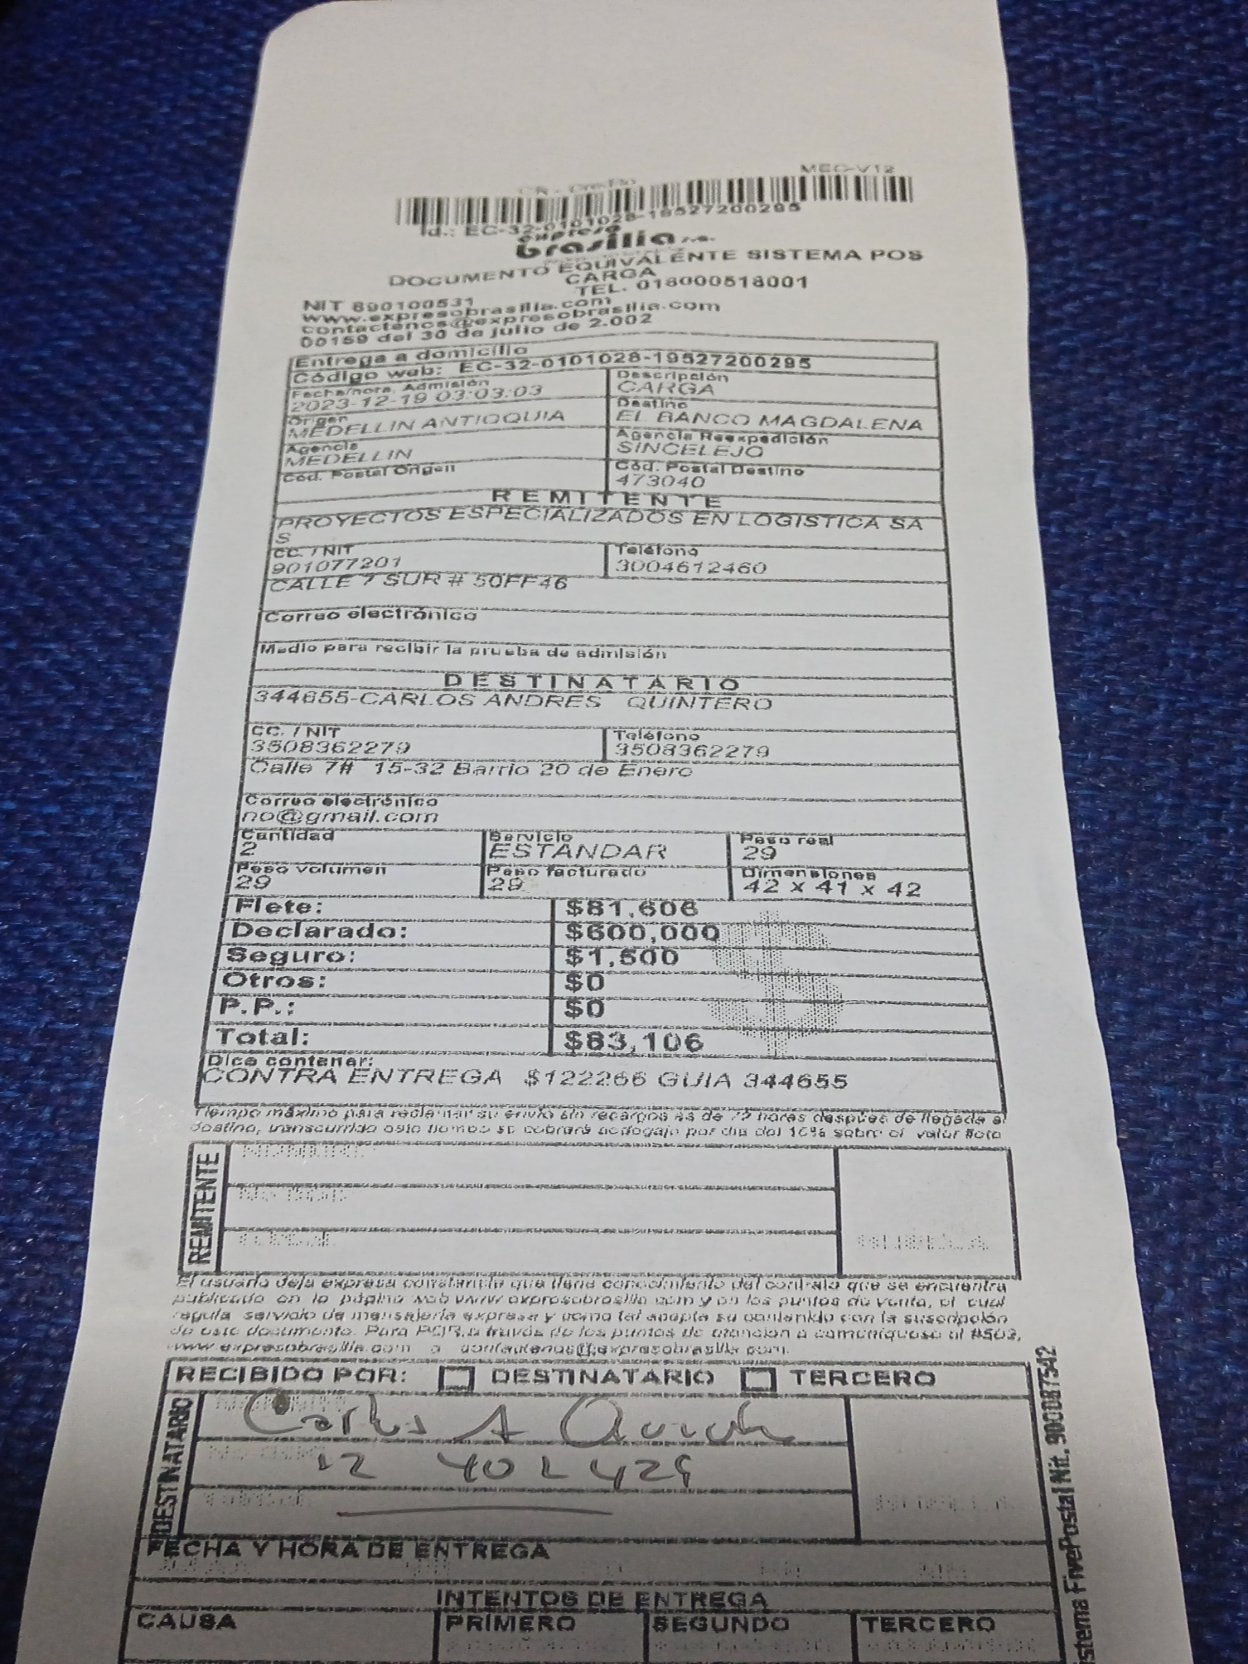 MEC-V12
Id.: EC-32-0101028-19527200295
expreso
brasilia s.a.
DOCUMENTO EQUIVALENTE SISTEMA POS
CARGA
TEL. 018000518001
NIT 890100531
www.expresobrasilia.com
contactenos@expresobrasilia.com
00159 del 30 de julio de 2.002
Entrega a domicilio
Código web: EC-32-0101028-19527200295
Fecha/hora. Admisión Descripción
2023-12-19 03:03:03 CARGA
Origen Destino
MEDELLIN ANTIOQUIA EL BANCO MAGDALENA
Agencia Agencia Reexpedición
MEDELLIN SINCELEJO
Cód. Postal Origen Cód. Postal Destino
473040
REMITENTE
PROYECTOS ESPECIALIZADOS EN LOGISTICA SA
S
CC. / NIT Teléfono
901077201 3004612460
CALLE 7 SUR # 50FF46
Correo electrónico
Medio para recibir la prueba de admisión
DESTINATARIO
344655-CARLOS ANDRES QUINTERO
CC. / NIT Teléfono
3508362279 3508362279
Calle 7# 15-32 Barrio 20 de Enero
Correo electrónico
no@gmail.com
Cantidad Servicio Peso real
2 ESTANDAR 29
Peso volumen Peso facturado Dimensiones
29 29 42 x 41 x 42
Flete: $81,606
Declarado: $600,000
Seguro: $1,500
Otros: $0
P.P.: $0
Total: $83,106
Dice contener:
CONTRA ENTREGA $122266 GUIA 344655
Tiempo máximo para reclamar su envío sin recargos es de 72 horas después de llegada al
destino, transcurrido este tiempo se cobrará bodegaje por día del 10% sobre el valor flete
REMITENTE
El usuario deja expresa constancia que tiene conocimiento del contrato que se encuentra
publicado en la página web www.expresobrasilia.com y en los puntos de venta, el cual
regula servicio de mensajería expresa y como tal acepta su contenido con la suscripción
de este documento. Para PQR a través de los puntos de atención o comuníquese al #502,
www.expresobrasilia.com o contactenos@expresobrasilia.com.
RECIBIDO POR: DESTINATARIO TERCERO
DESTINATARIO
Carlos A
12 402 429
FECHA Y HORA DE ENTREGA
INTENTOS DE ENTREGA
CAUSA PRIMERO SEGUNDO TERCERO
istema FivePostal Nit. 900087542